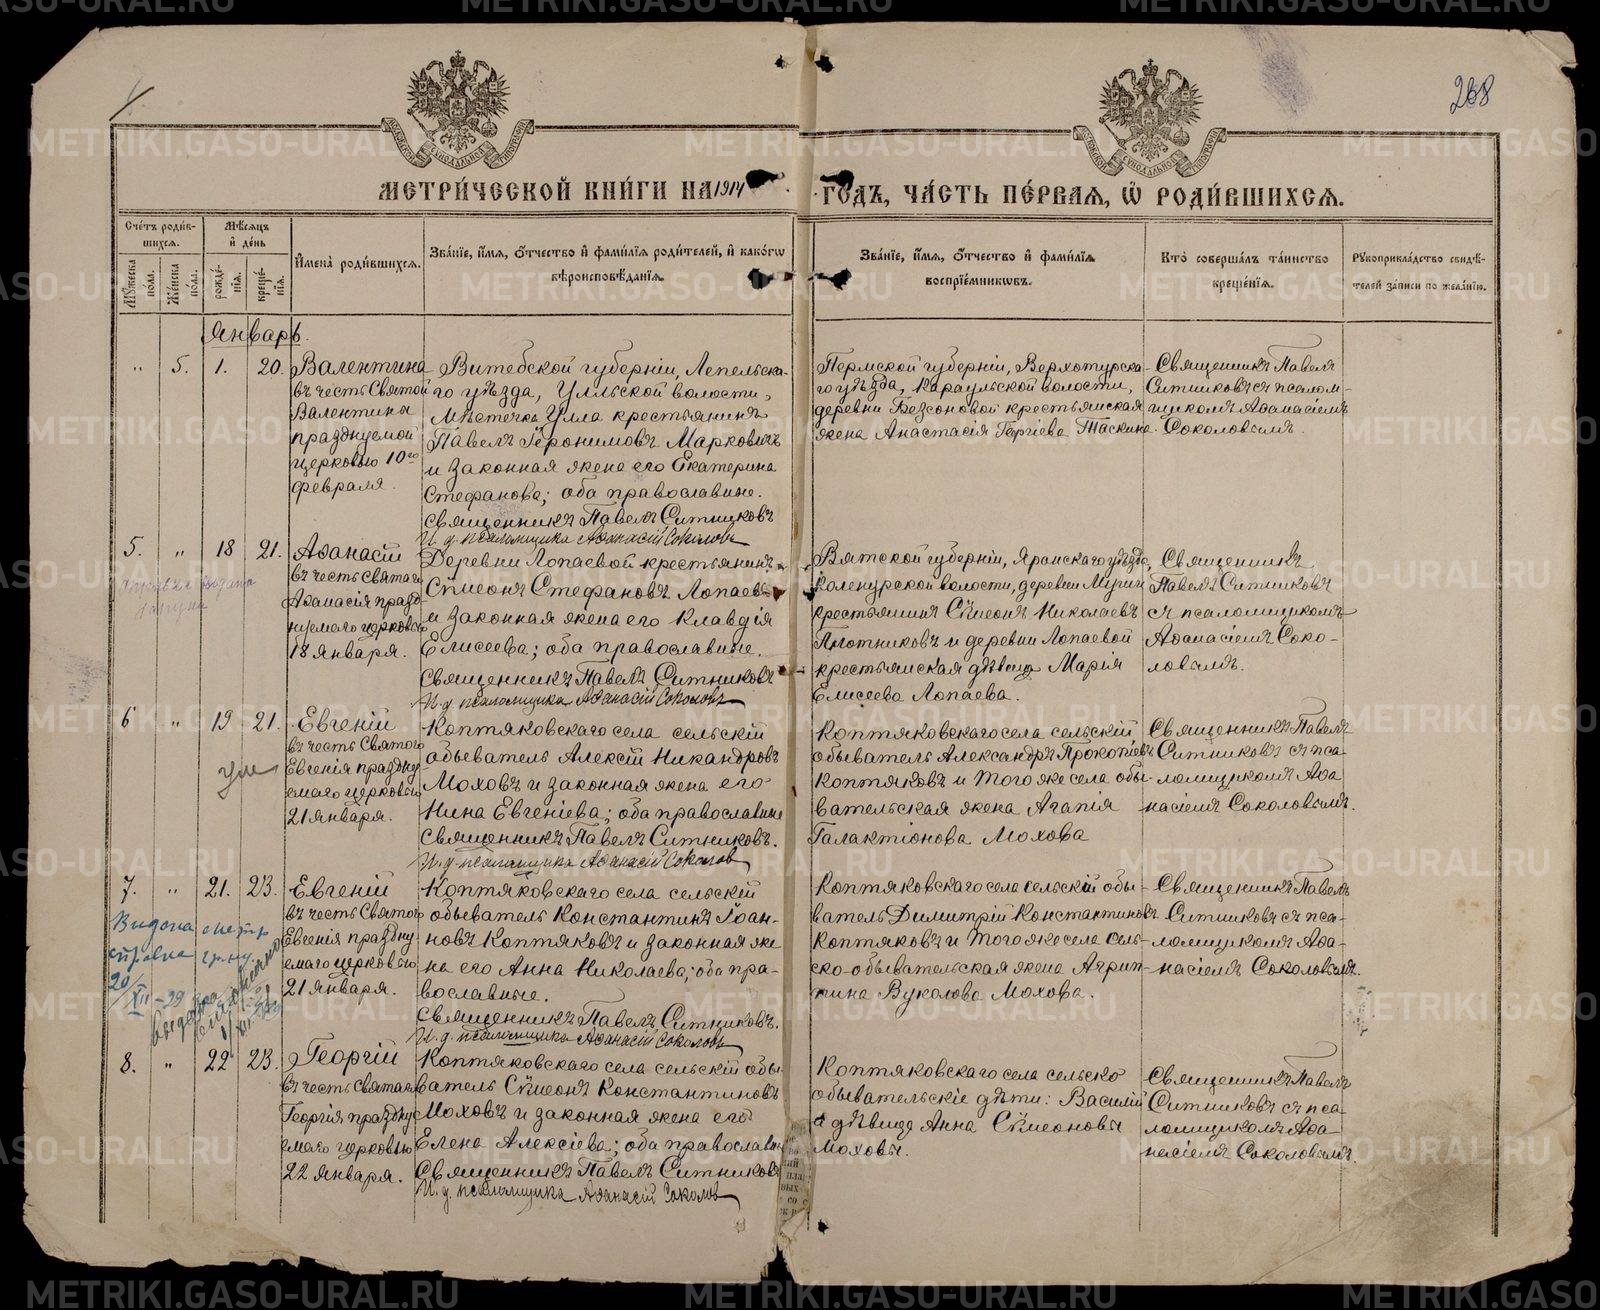 268
МЕТРИ́ЧЕСКОЙ КНИ́ГИ НА 1914
ГОДЪ, ЧА́СТЬ ПЕ́РВАЯ, Ѽ РОДИ́ВШИХСЯ.
Сче́тъ роди́в-
шихся.
Мѣ́сяцъ
и҆ де́нь
Му́жеска по́ла.
Же́нска по́ла.
рожде́-
нія.
креще́-
нія.
И҆мена̀ роди́вшихся.
Зва́ніе, и҆́мя, ѻ҆́тчество и҆ фами́лія роди́телей, и҆ како́гѡ
вѣроисповѣ́данія.
Зва́ніе, и҆́мя, ѻ҆́тчество и҆ фами́лія
воспріе́мниковъ.
Кто̀ соверша́лъ та́инство
креще́нія.
Рꙋкоприкла́дство свидѣ́-
телей за́писи по жела́нію.
Январь.
" 5. 1. 20.
Валентина
въ честь Святой
Валентины
празднуемой
церковью 10го
февраля.
Витебской губерніи, Лепельска-
го уѣзда, Улльской волости,
Мѣстечка Улла крестьянинъ
Павелъ Іеронимовъ Марковичъ
и законная жена его Екатерина
Стефанова; оба православные.
Священникъ Павелъ Ситниковъ
И. д. псаломщика Аѳанасій Соколовъ
Пермской губерніи, Верхотурска-
го уѣзда, Караульской волости,
деревни Безсоновой крестьянская
жена Анастасія Георгіева Таскина.
Священникъ Павелъ
Ситниковъ съ псалом-
щикомъ Аѳанасіемъ
Соколовымъ.
5. " 18 21.
Аѳанасій
въ честь Святаго
Аѳанасія празд-
нуемаго церковью
18 января.
Деревни Лопаевой крестьянинъ
Сѵмеонъ Стефановъ Лопаевъ
и законная жена его Клавдія
Елисеева; оба православные.
Священникъ Павелъ Ситниковъ
И. д. псаломщика Аѳанасій Соколовъ
Вятской губерніи, Яранскаго уѣзда,
волости, деревни
крестьянинъ Сѵмеонъ Николаевъ
Плотниковъ и деревни Лопаевой
крестьянская дѣвица Марія
Елисеева Лопаева.
Священникъ
Павелъ Ситниковъ
съ псаломщикомъ
Аѳанасіемъ Соко-
ловымъ.
6 " 19 21.
Евгеній
въ честь Святого
Евгенія праздну-
емаго церковью
21 января.
ум
Коптяковскаго села сельскій
обыватель Алексій Никандровъ
Моховъ и законная жена его
Нина Евгеніева; оба православные
Священникъ Павелъ Ситниковъ.
И. д. псаломщика Аѳанасій Соколов
Коптяковскаго села сельскій
обыватель Александръ Прокопіевъ
Коптяковъ и того же села обы-
вательская жена Агапія
Галактіонова Мохова
Священникъ Павелъ
Ситниковъ съ пса-
ломщикомъ Аѳа
насіемъ Соколовымъ.
7. " 21. 23.
Евгеній
въ честь Святого
Евгенія праздну-
емаго церковью
21 января.
Видана метр
справка
20/XII-39
Коптяковскаго села сельскій
обыватель Константинъ Іоан-
новъ Коптяковъ и законная же
на его Анна Николаева; оба пра-
вославные.
Священникъ Павелъ Ситниковъ.
И. д. псаломщика Аѳанасій Соколовъ
Коптяковскаго села сельскій обы-
ватель Димитрій Константиновъ
Коптяковъ и того же села сель-
ско-обывательская жена Агрип-
пина Вуколова Мохова.
Священникъ Павелъ
Ситниковъ съ пса-
ломщикомъ Аѳа-
насіемъ Соколовымъ.
8. " 22 23.
Георгій
въ честь Святаго
Георгія праздну-
емаго церковью
22 января.
Коптяковскаго села сельскій обы-
ватель Сѵмеонъ Константиновъ
Моховъ и законная жена его
Елена Алексіева; оба православн
Священникъ Павелъ Ситниковъ
И. д. псаломщика Аѳанасій Соколов
Коптяковскаго села сельско
обывательскіе дѣти: Василій
и дѣвица Анна Сѵмеоновы
Моховы.
Священникъ Павелъ
Ситниковъ съ пса
ломщикомъ Аѳа-
насіемъ Соколовымъ.
METRIKI.GASO-URAL.RU